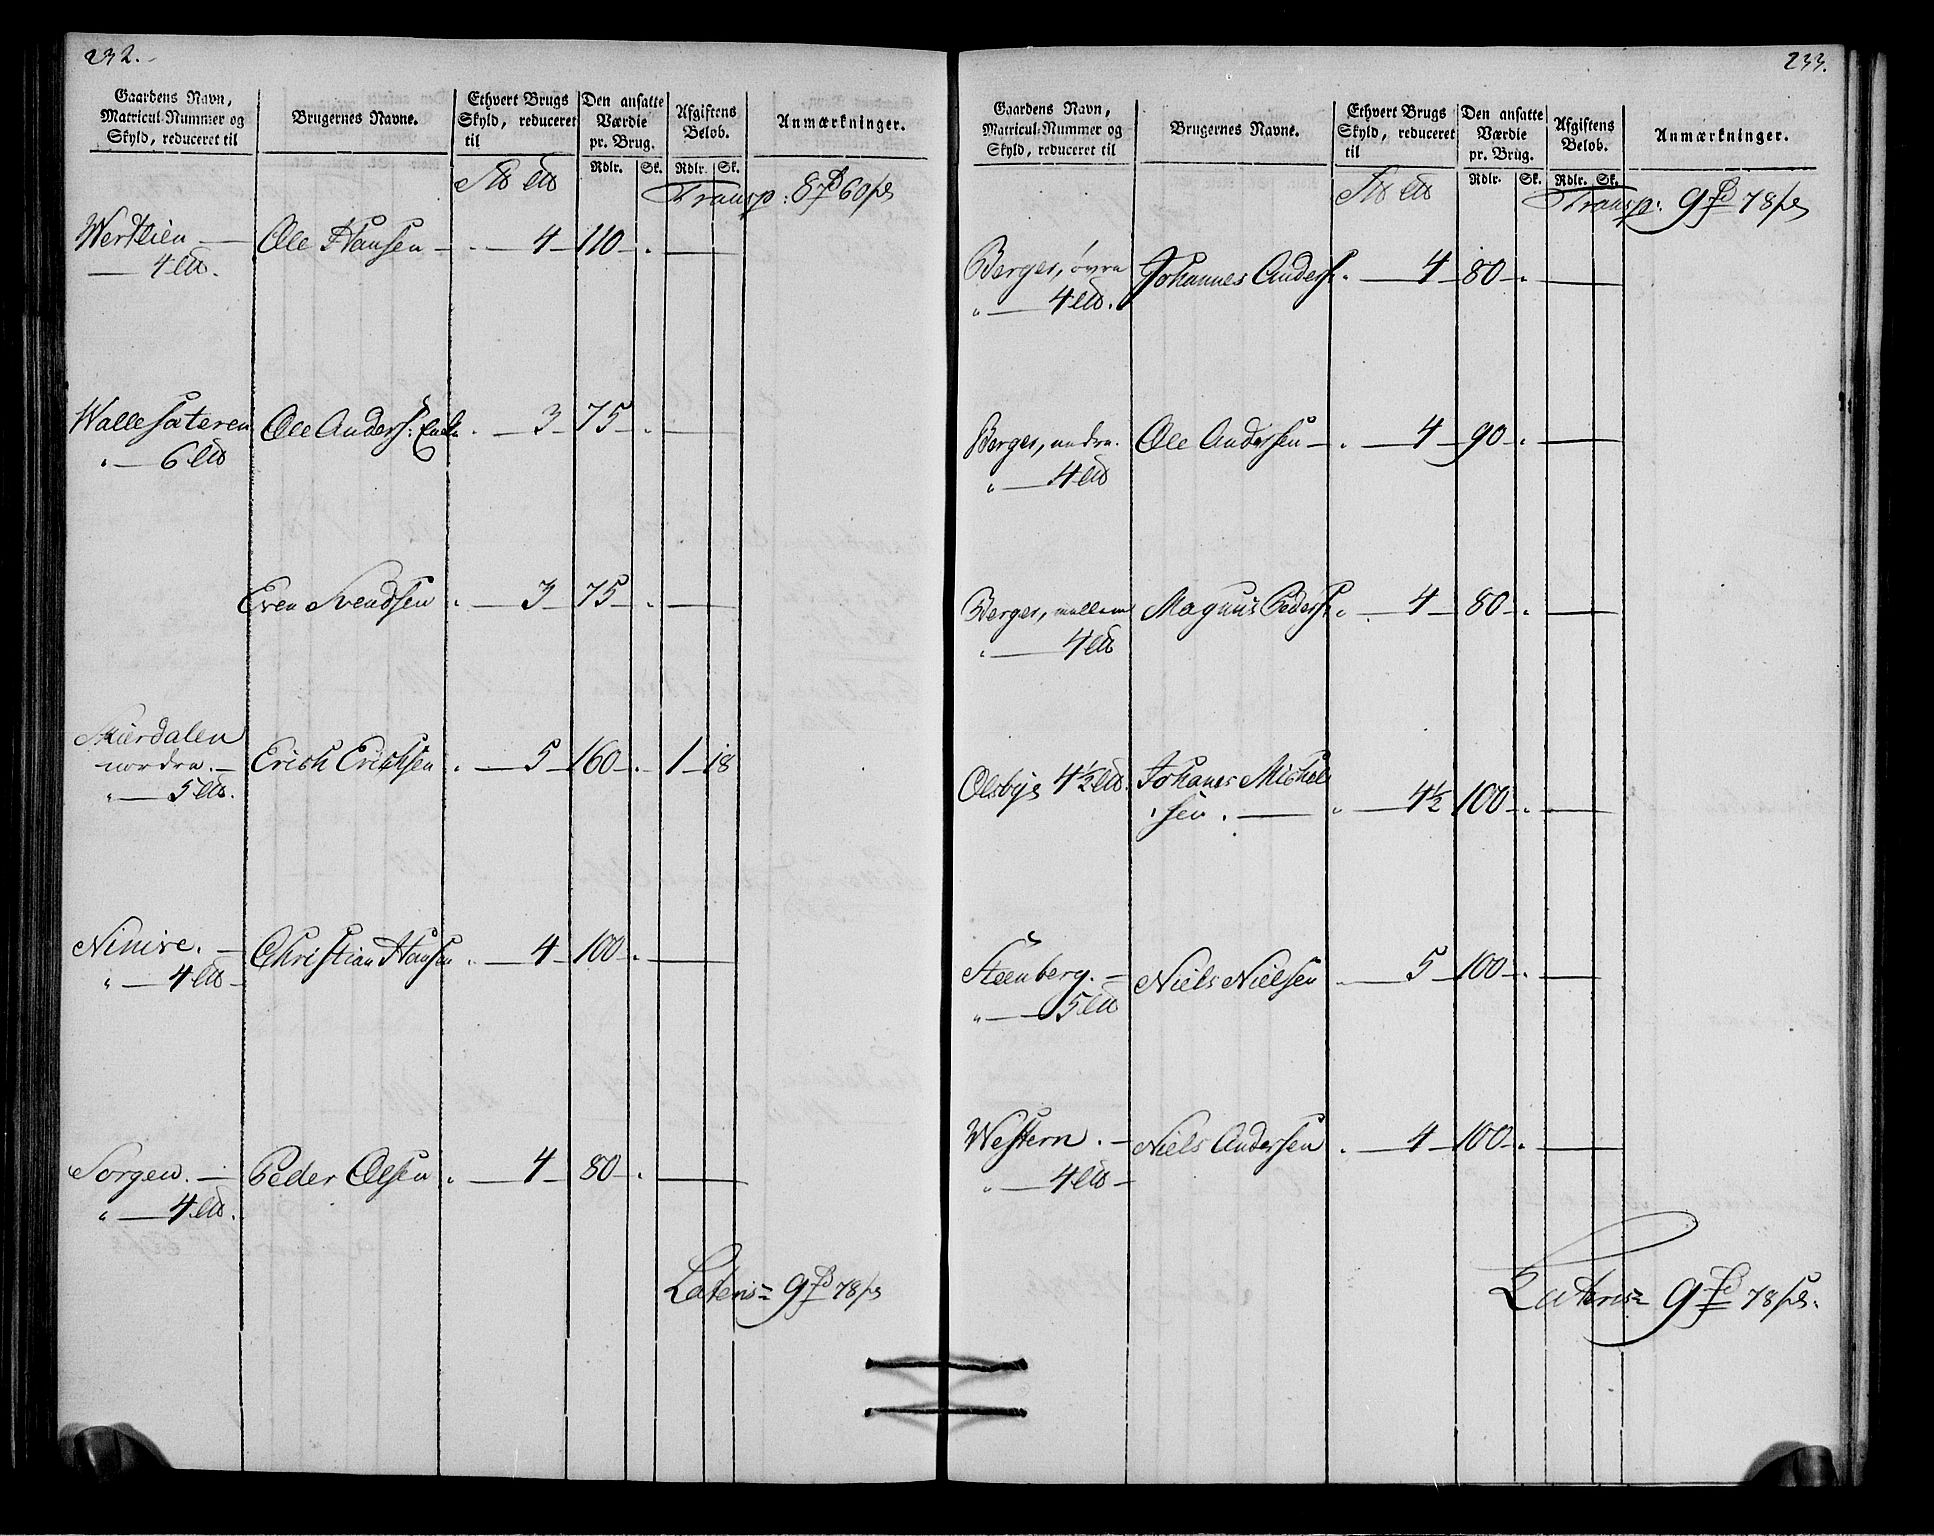 232.
Gaardens Navn, Matricul-Nummer og Skyld, reduceret til
Brugernes Navne.
Ethvert Brugs Skyld, reduceret til
Den ansatte Værdie pr. Brug.
Afgiftens Belob.
Anmærkninger.
Rdlr. Sk. Rdlr. Sk.
Transp: 8 60
Werklien — Ole Hansen - 4 - 110
— 4
Wallesæteren Ole Anders: - 3 - 75
" — 6
Even Svendsen " — 3 - 75
Skurdalen
nordre. — Erich Erichsen " — 5 - 160 - 1 - 18
" — 5
Ninive. — Christian Hansen " — 4 - 100
" — 4
Sorgen. — Peder Olsen " — 4 - 80
" — 4
Lateris 9 78
233.
Gaardens Navn, Matricul-Nummer og Skyld, reduceret til
Brugernes Navne.
Ethvert Brugs Skyld, reduceret til
Den ansatte Værdie pr. Brug.
Afgiftens Belob.
Anmærkninger.
Rdlr. Sk. Rdlr. Sk.
Transp: 9 78
Berger, øvre Johannes Anders " — 4 - 80
" — 4
Berger, nedre. Ole Andersen — " — 4 - 90
" — 4
Berger, mellem Magnus Peders " — 4 - 80
" — 4
Olsbye 4½ Johanes Michel
sen. — " — 4½ 100
Steenberg. — Niels Nielsen — 5 - 100
" — 5
Western. — Niels Andersen " — 4 - 100
" — 4
Lateris 9 78